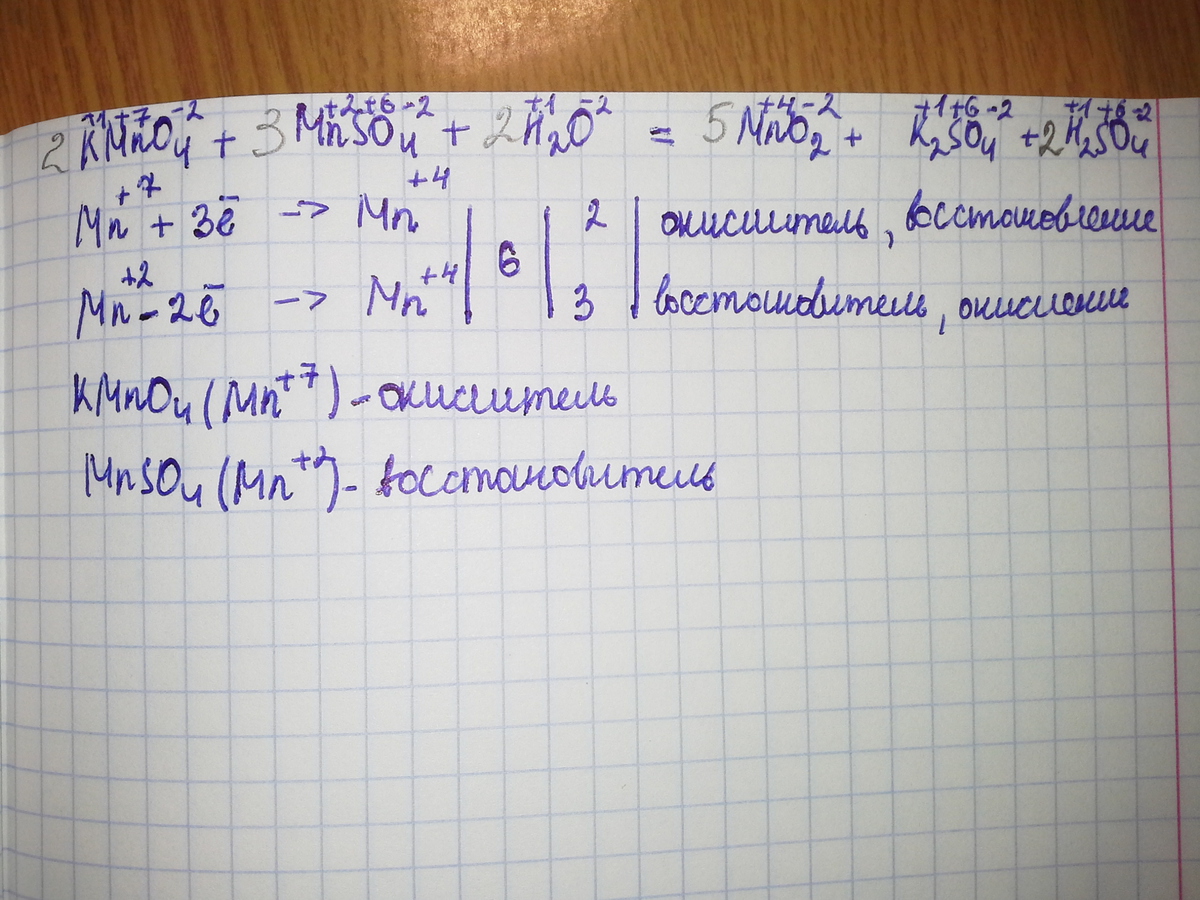 2K⁺¹Mn⁺⁷O₄⁻² + 3Mn⁺²S⁺⁶O₄⁻² + 2H₂⁺¹O⁻² = 5Mn⁺⁴O₂⁻² + K₂⁺¹S⁺⁶O₄⁻² + 2H₂⁺¹S⁺⁶O₄⁻²
Mn⁺⁷ + 3ē -> Mn⁺⁴ | 6 | 2 | окислитель, восстановление
Mn⁺² - 2ē -> Mn⁺⁴ | | 3 | восстановитель, окисление
KMnO₄ (Mn⁺⁷) - окислитель
MnSO₄ (Mn⁺²) - восстановитель